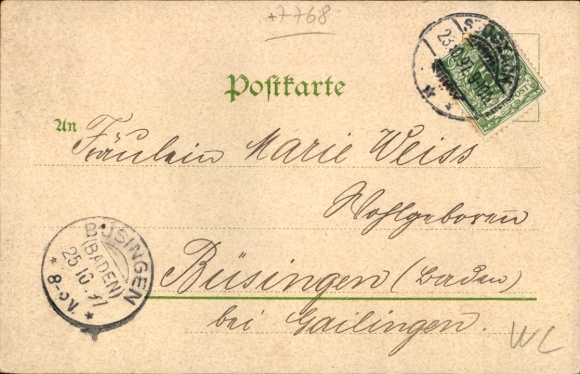 +7768
Postkarte
An
Fräulein Marie Weiss
Wohlgeboren
Büsingen (Baden)
bei Gailingen.
BÜSINGEN
(BADEN)
25 10. 97
* 8-9V. *
WL